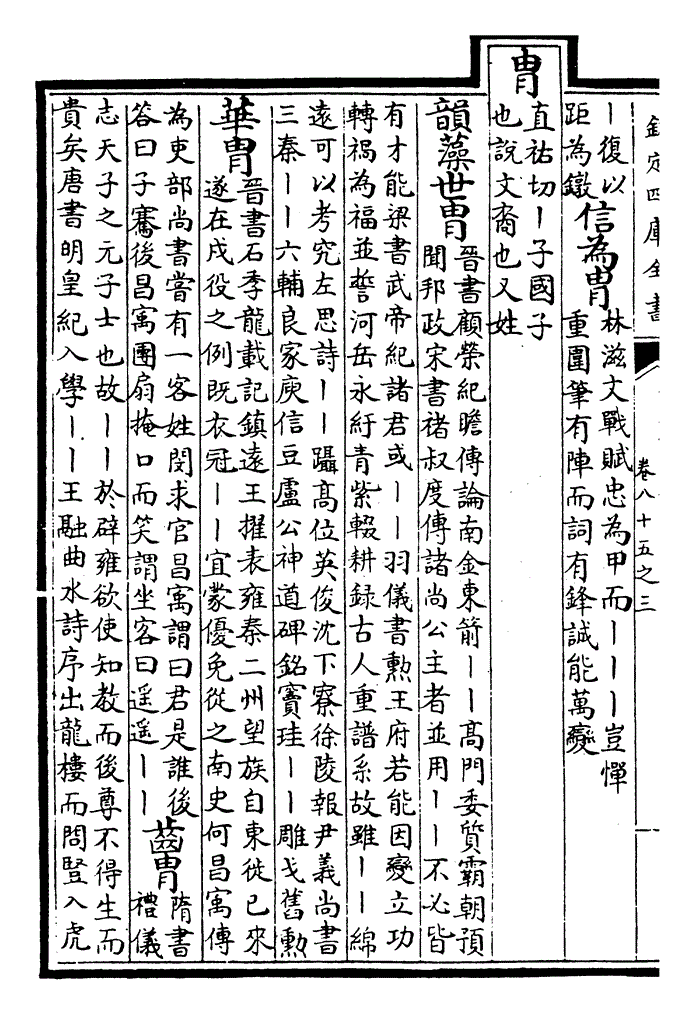 欽定四庫全書
卷八十五之三
丨復以
距為鐓
信為胄
林滋文戰賦忠為甲而丨丨丨豈憚
重圍筆有陣而詞有鋒誠能萬變
胄
直祐切丨子國子
也說文裔也又姓
韻藻世胄
晉書顧榮紀瞻傳論南金東箭丨丨高門委質霸朝預
聞邦政宋書褚叔度傳諸尚公主者並用丨丨不必皆
有才能梁書武帝紀諸君或丨丨羽儀書勲王府若能因變立功
轉禍為福並誓河岳永紆青紫輟耕録古人重譜系故雖丨丨綿
遠可以考究左思詩丨丨躡高位英俊沈下寮徐陵報尹義尚書
三秦丨丨六輔良家庾信豆盧公神道碑銘寳珪丨丨雕戈舊勲
華胄
晉書石季龍載記鎮遠王擢表雍秦二州望族自東徙已來
遂在戍役之例既衣冠丨丨宜蒙優免從之南史何昌寓傳
為吏部尚書嘗有一客姓閔求官昌寓謂曰君是誰後
答曰子騫後昌寓團扇掩口而笑謂坐客曰遥遥丨丨
齒胄
隋書
禮儀
志天子之元子士也故丨丨於辟雍欲使知教而後尊不得生而
貴矣唐書明皇紀入學丨丨王融曲水詩序出龍樓而問豎入虎